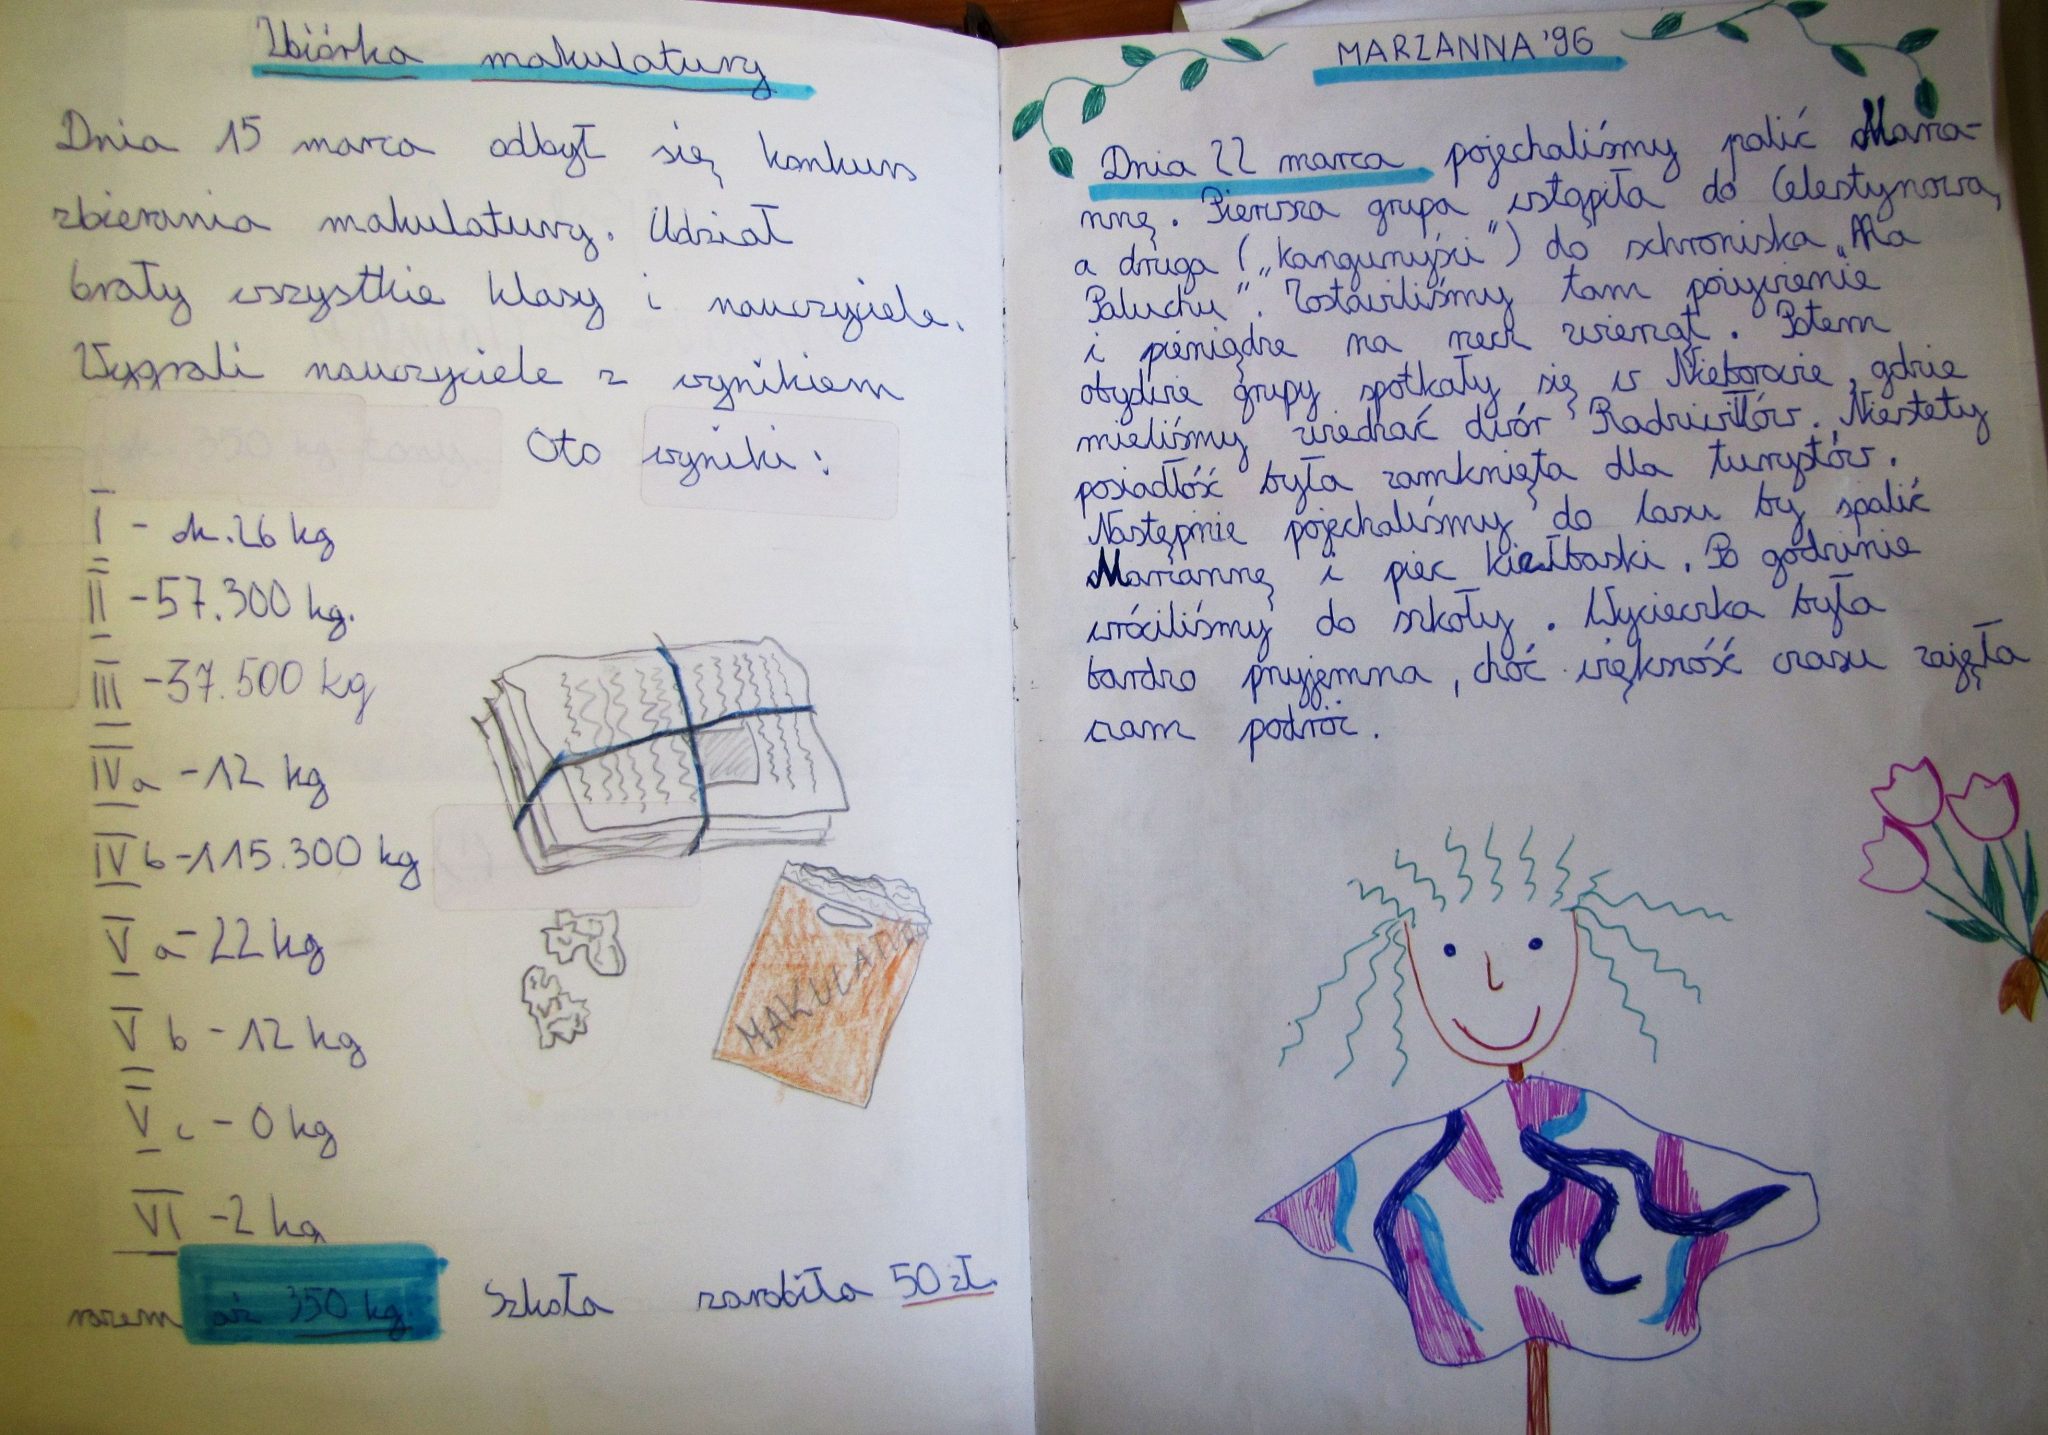 Zbiórka makulatury
Dnia 15 marca odbył się konkurs
zbierania makulatury. Udział
brały wszystkie klasy i nauczyciele.
Wygrali nauczyciele z wynikiem
Oto wyniki:
I - ok. 26 kg
II - 57.300 kg.
III - 37.500 kg
IV a - 12 kg
IV b - 115.300 kg
V a - 22 kg
V b - 12 kg
V c - 0 kg
VI - 2 kg
razem aż 350 kg. Szkoła zarobiła 50 zł.
MAKULATURA
MARZANNA '96
Dnia 22 marca pojechaliśmy palić Marza-
nnę. Pierwsza grupa wstąpiła do Celestynowa,
a druga („kangurzyści") do schroniska „Na
Paluchu". Zostawiliśmy tam pożywienie
i pieniądze na rzecz zwierząt. Potem
obydwie grupy spotkały się w Nieborowie, gdzie
mieliśmy zwiedzać dwór Radziwiłłów. Niestety
posiadłość była zamknięta dla turystów.
Następnie pojechaliśmy do lasu by spalić
Marzannę i piec kiełbaski. Po godzinie
wróciliśmy do szkoły. Wycieczka była
bardzo przyjemna, choć większość czasu zajęła
nam podróż.